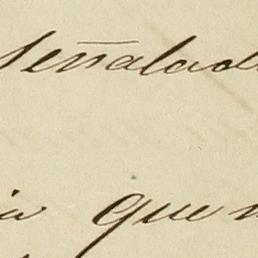 señalad
ia que